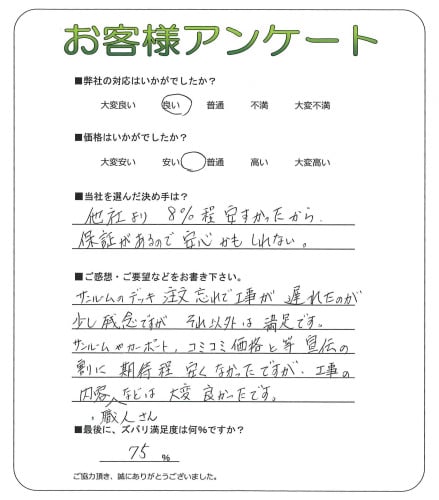 お客様アンケート
■弊社の対応はいかがでしたか?
大変良い 良い 普通 不満 大変不満
■価格はいかがでしたか?
大変安い 安い 普通 高い 大変高い
■当社を選んだ決め手は?
他社より 8%程 安すかったから.
保証があるので 安心かもしれない。
■ご感想・ご要望などをお書き下さい。
サンルームのデッキ 注文 忘れで工事が 遅れたのが
少し残念ですが それ以外は 満足です。
サンルームやカーポート、コミコミ価格と 宣伝の
割に 期待程 安くなかったですが、工事の
内容 などは 大変 良かったです。
、職人さん
■最後に、ズバリ満足度は何%ですか?
75 %
ご協力頂き、誠にありがとうございました。